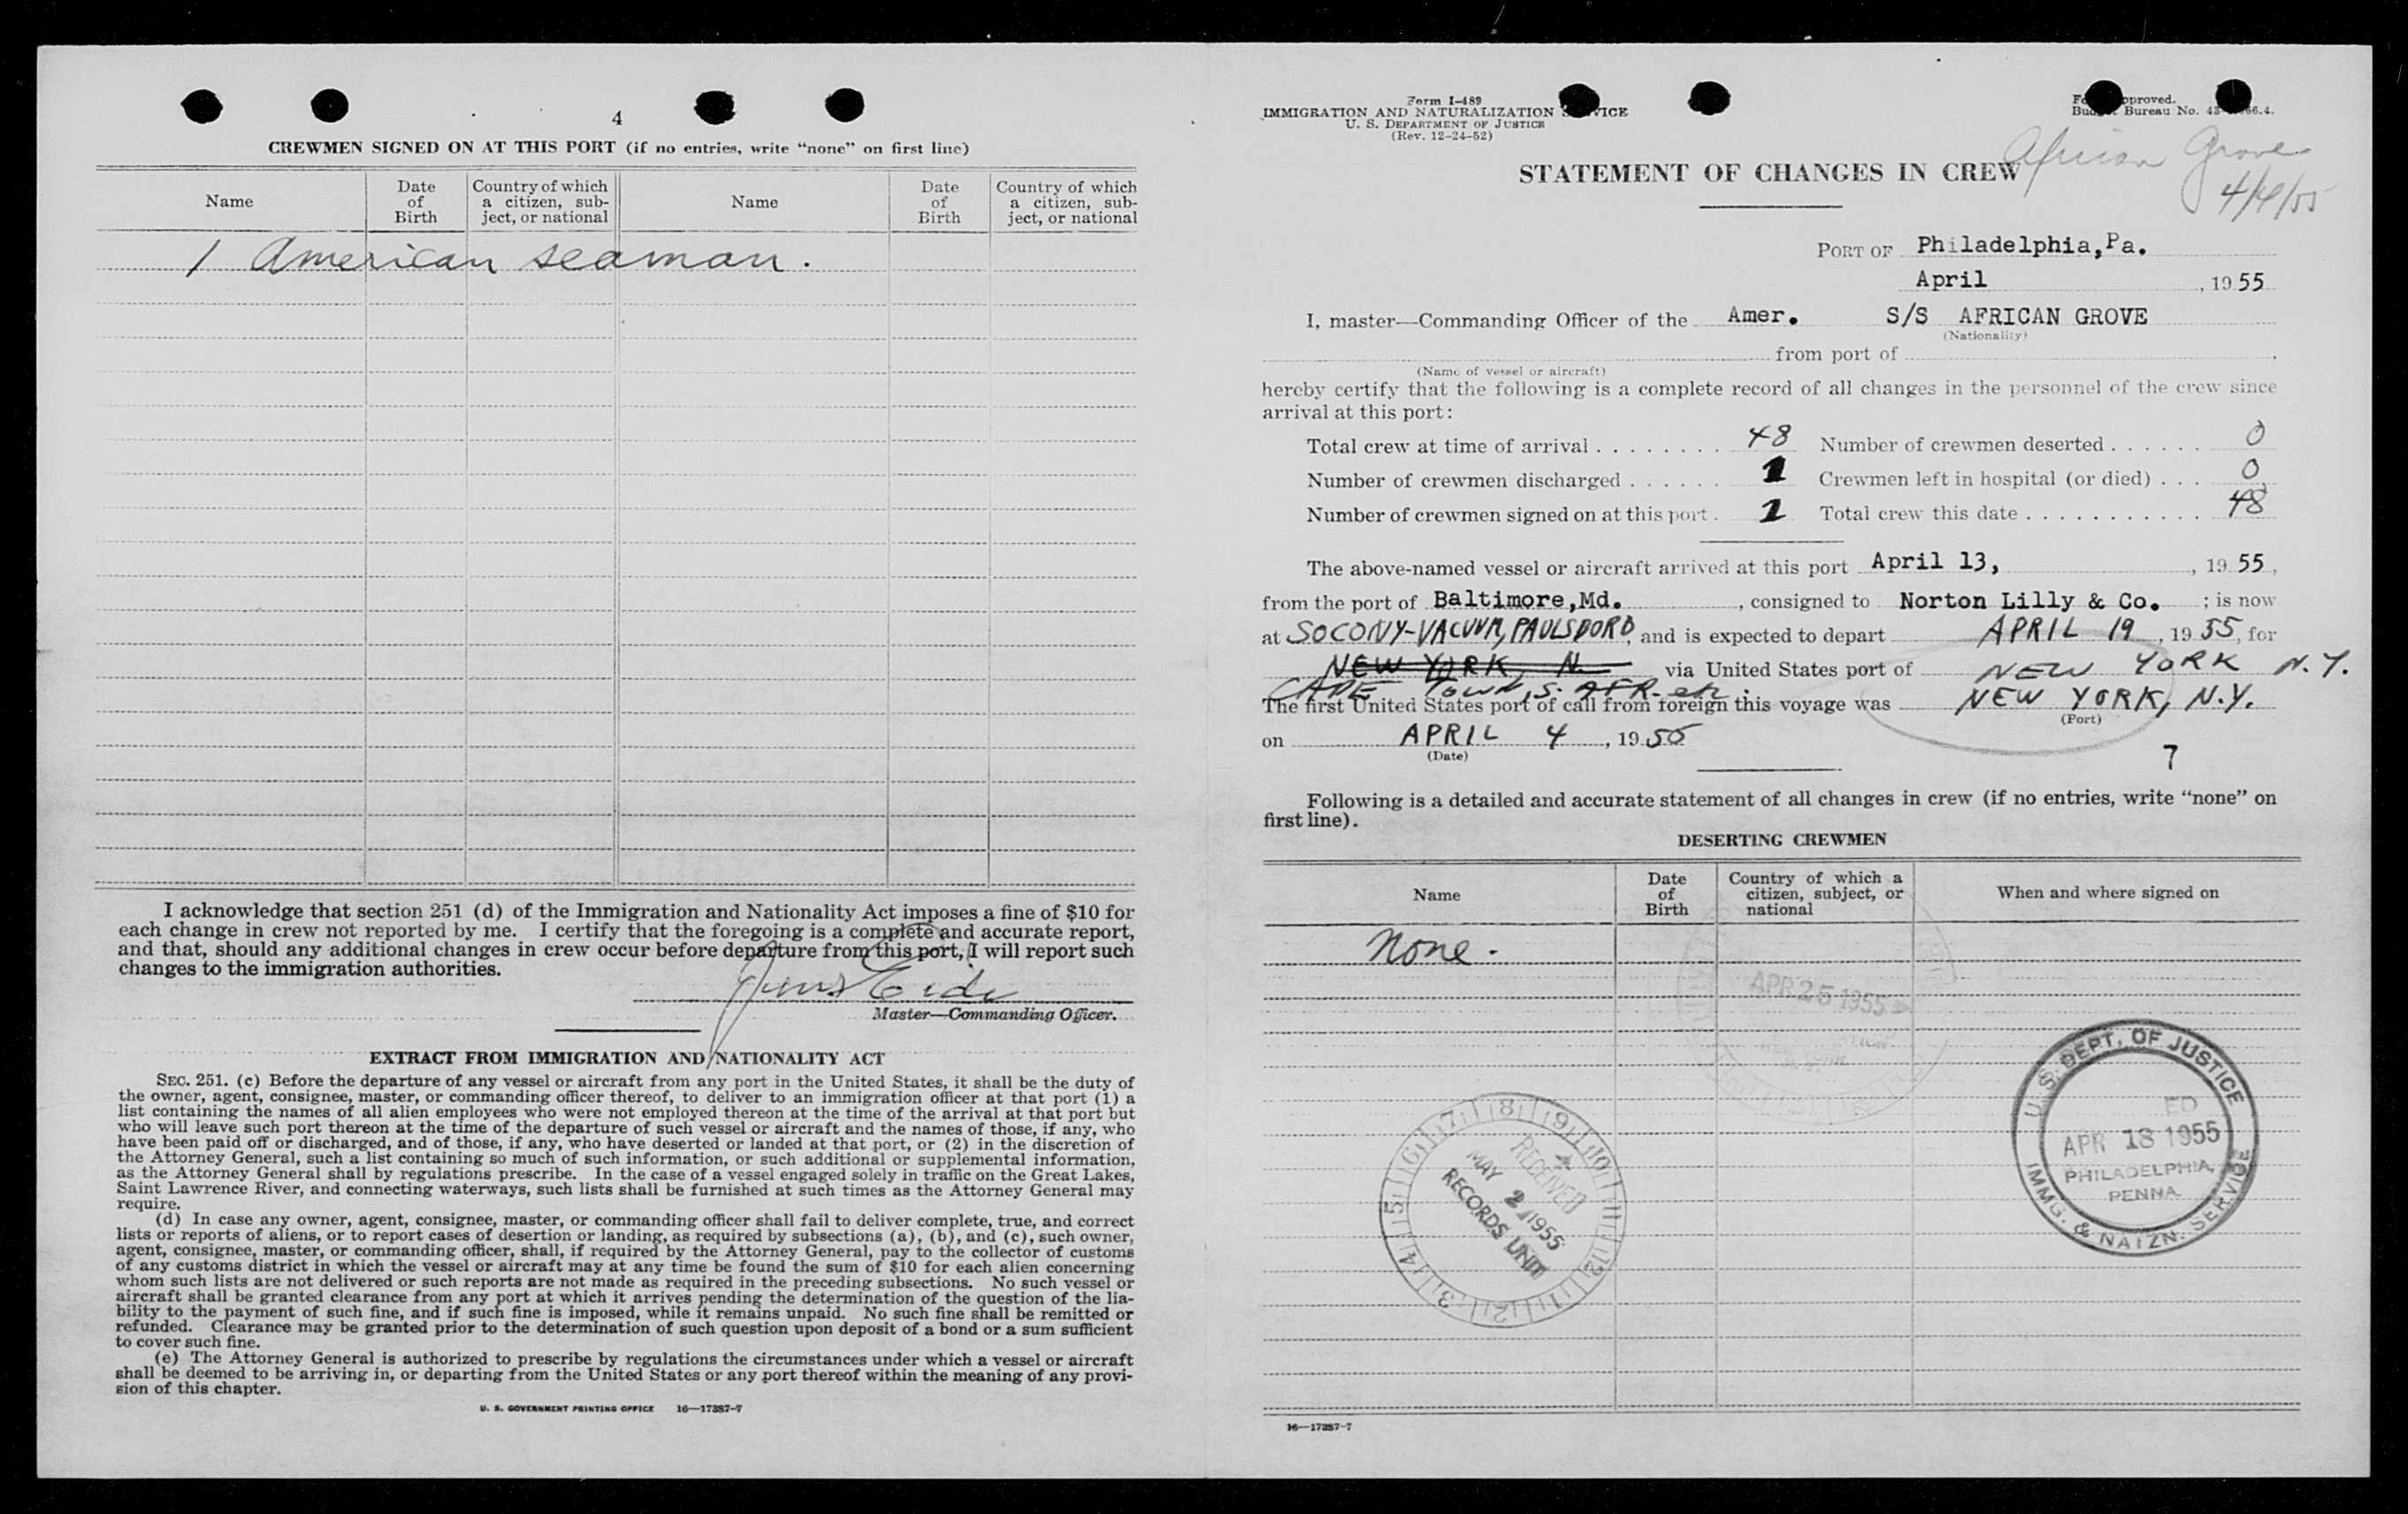 4
CREWMEN SIGNED ON AT THIS PORT (if no entries, write “none” on first line)
Name
Date of Birth
Country of which a citizen, sub-ject, or national
Name
Date of Birth
Country of which a citizen, sub-ject, or national
1 American seaman.
I acknowledge that section 251 (d) of the Immigration and Nationality Act imposes a fine of $10 for
each change in crew not reported by me. I certify that the foregoing is a complete and accurate report,
and that, should any additional changes in crew occur before departure from this port, I will report such
changes to the immigration authorities.
Jens Eide
Master—Commanding Officer.
EXTRACT FROM IMMIGRATION AND NATIONALITY ACT
SEC. 251. (c) Before the departure of any vessel or aircraft from any port in the United States, it shall be the duty of
the owner, agent, consignee, master, or commanding officer thereof, to deliver to an immigration officer at that port (1) a
list containing the names of all alien employees who were not employed thereon at the time of the arrival at that port but
who will leave such port thereon at the time of the departure of such vessel or aircraft and the names of those, if any, who
have been paid off or discharged, and of those, if any, who have deserted or landed at that port, or (2) in the discretion of
the Attorney General, such a list containing so much of such information, or such additional or supplemental information,
as the Attorney General shall by regulations prescribe. In the case of a vessel engaged solely in traffic on the Great Lakes,
Saint Lawrence River, and connecting waterways, such lists shall be furnished at such times as the Attorney General may
require.
(d) In case any owner, agent, consignee, master, or commanding officer shall fail to deliver complete, true, and correct
lists or reports of aliens, or to report cases of desertion or landing, as required by subsections (a), (b), and (c), such owner,
agent, consignee, master, or commanding officer, shall, if required by the Attorney General, pay to the collector of customs
of any customs district in which the vessel or aircraft may at any time be found the sum of $10 for each alien concerning
whom such lists are not delivered or such reports are not made as required in the preceding subsections. No such vessel or
aircraft shall be granted clearance from any port at which it arrives pending the determination of the question of the lia-
bility to the payment of such fine, and if such fine is imposed, while it remains unpaid. No such fine shall be remitted or
refunded. Clearance may be granted prior to the determination of such question upon deposit of a bond or a sum sufficient
to cover such fine.
(e) The Attorney General is authorized to prescribe by regulations the circumstances under which a vessel or aircraft
shall be deemed to be arriving in, or departing from the United States or any port thereof within the meaning of any provi-
sion of this chapter.
U. S. GOVERNMENT PRINTING OFFICE 16—17387-7
Form I-489
IMMIGRATION AND NATURALIZATION SERVICE
U. S. DEPARTMENT OF JUSTICE
(Rev. 12-24-52)
Form approved.
Budget Bureau No.
African Grove
4/4/55
STATEMENT OF CHANGES IN CREW
PORT OF Philadelphia,Pa.
April , 1955
I, master—Commanding Officer of the Amer. S/S AFRICAN GROVE
(Nationality)
from port of
(Name of vessel or aircraft)
hereby certify that the following is a complete record of all changes in the personnel of the crew since
arrival at this port:
Total crew at time of arrival 48 Number of crewmen deserted 0
Number of crewmen discharged 1 Crewmen left in hospital (or died) 0
Number of crewmen signed on at this port 1 Total crew this date 48
The above-named vessel or aircraft arrived at this port April 13, , 1955,
from the port of Baltimore,Md. , consigned to Norton Lilly & Co. ; is now
at SOCONY-VACUUM, PAULSBORO, and is expected to depart APRIL 19, 1955, for
NEW YORK, N. via United States port of NEW YORK N.Y.
CAPE TOWN, S. AFR.
The first United States port of call from foreign this voyage was NEW YORK, N.Y.
(Port)
on APRIL 4, 1955
(Date)
7
Following is a detailed and accurate statement of all changes in crew (if no entries, write “none” on
first line).
DESERTING CREWMEN
Name
Date of Birth
Country of which a citizen, subject, or national
When and where signed on
None.
APR 25 1955
U. S. DEPT. OF JUSTICE
APR 18 1955
PHILADELPHIA,
PENNA.
IMMG. & NATZN. SERVICE
RECEIVED
MAY 2 1955
RECORDS UNIT
7 8 9 10 11 12 1 2 3 4 5 6
16—17387-7